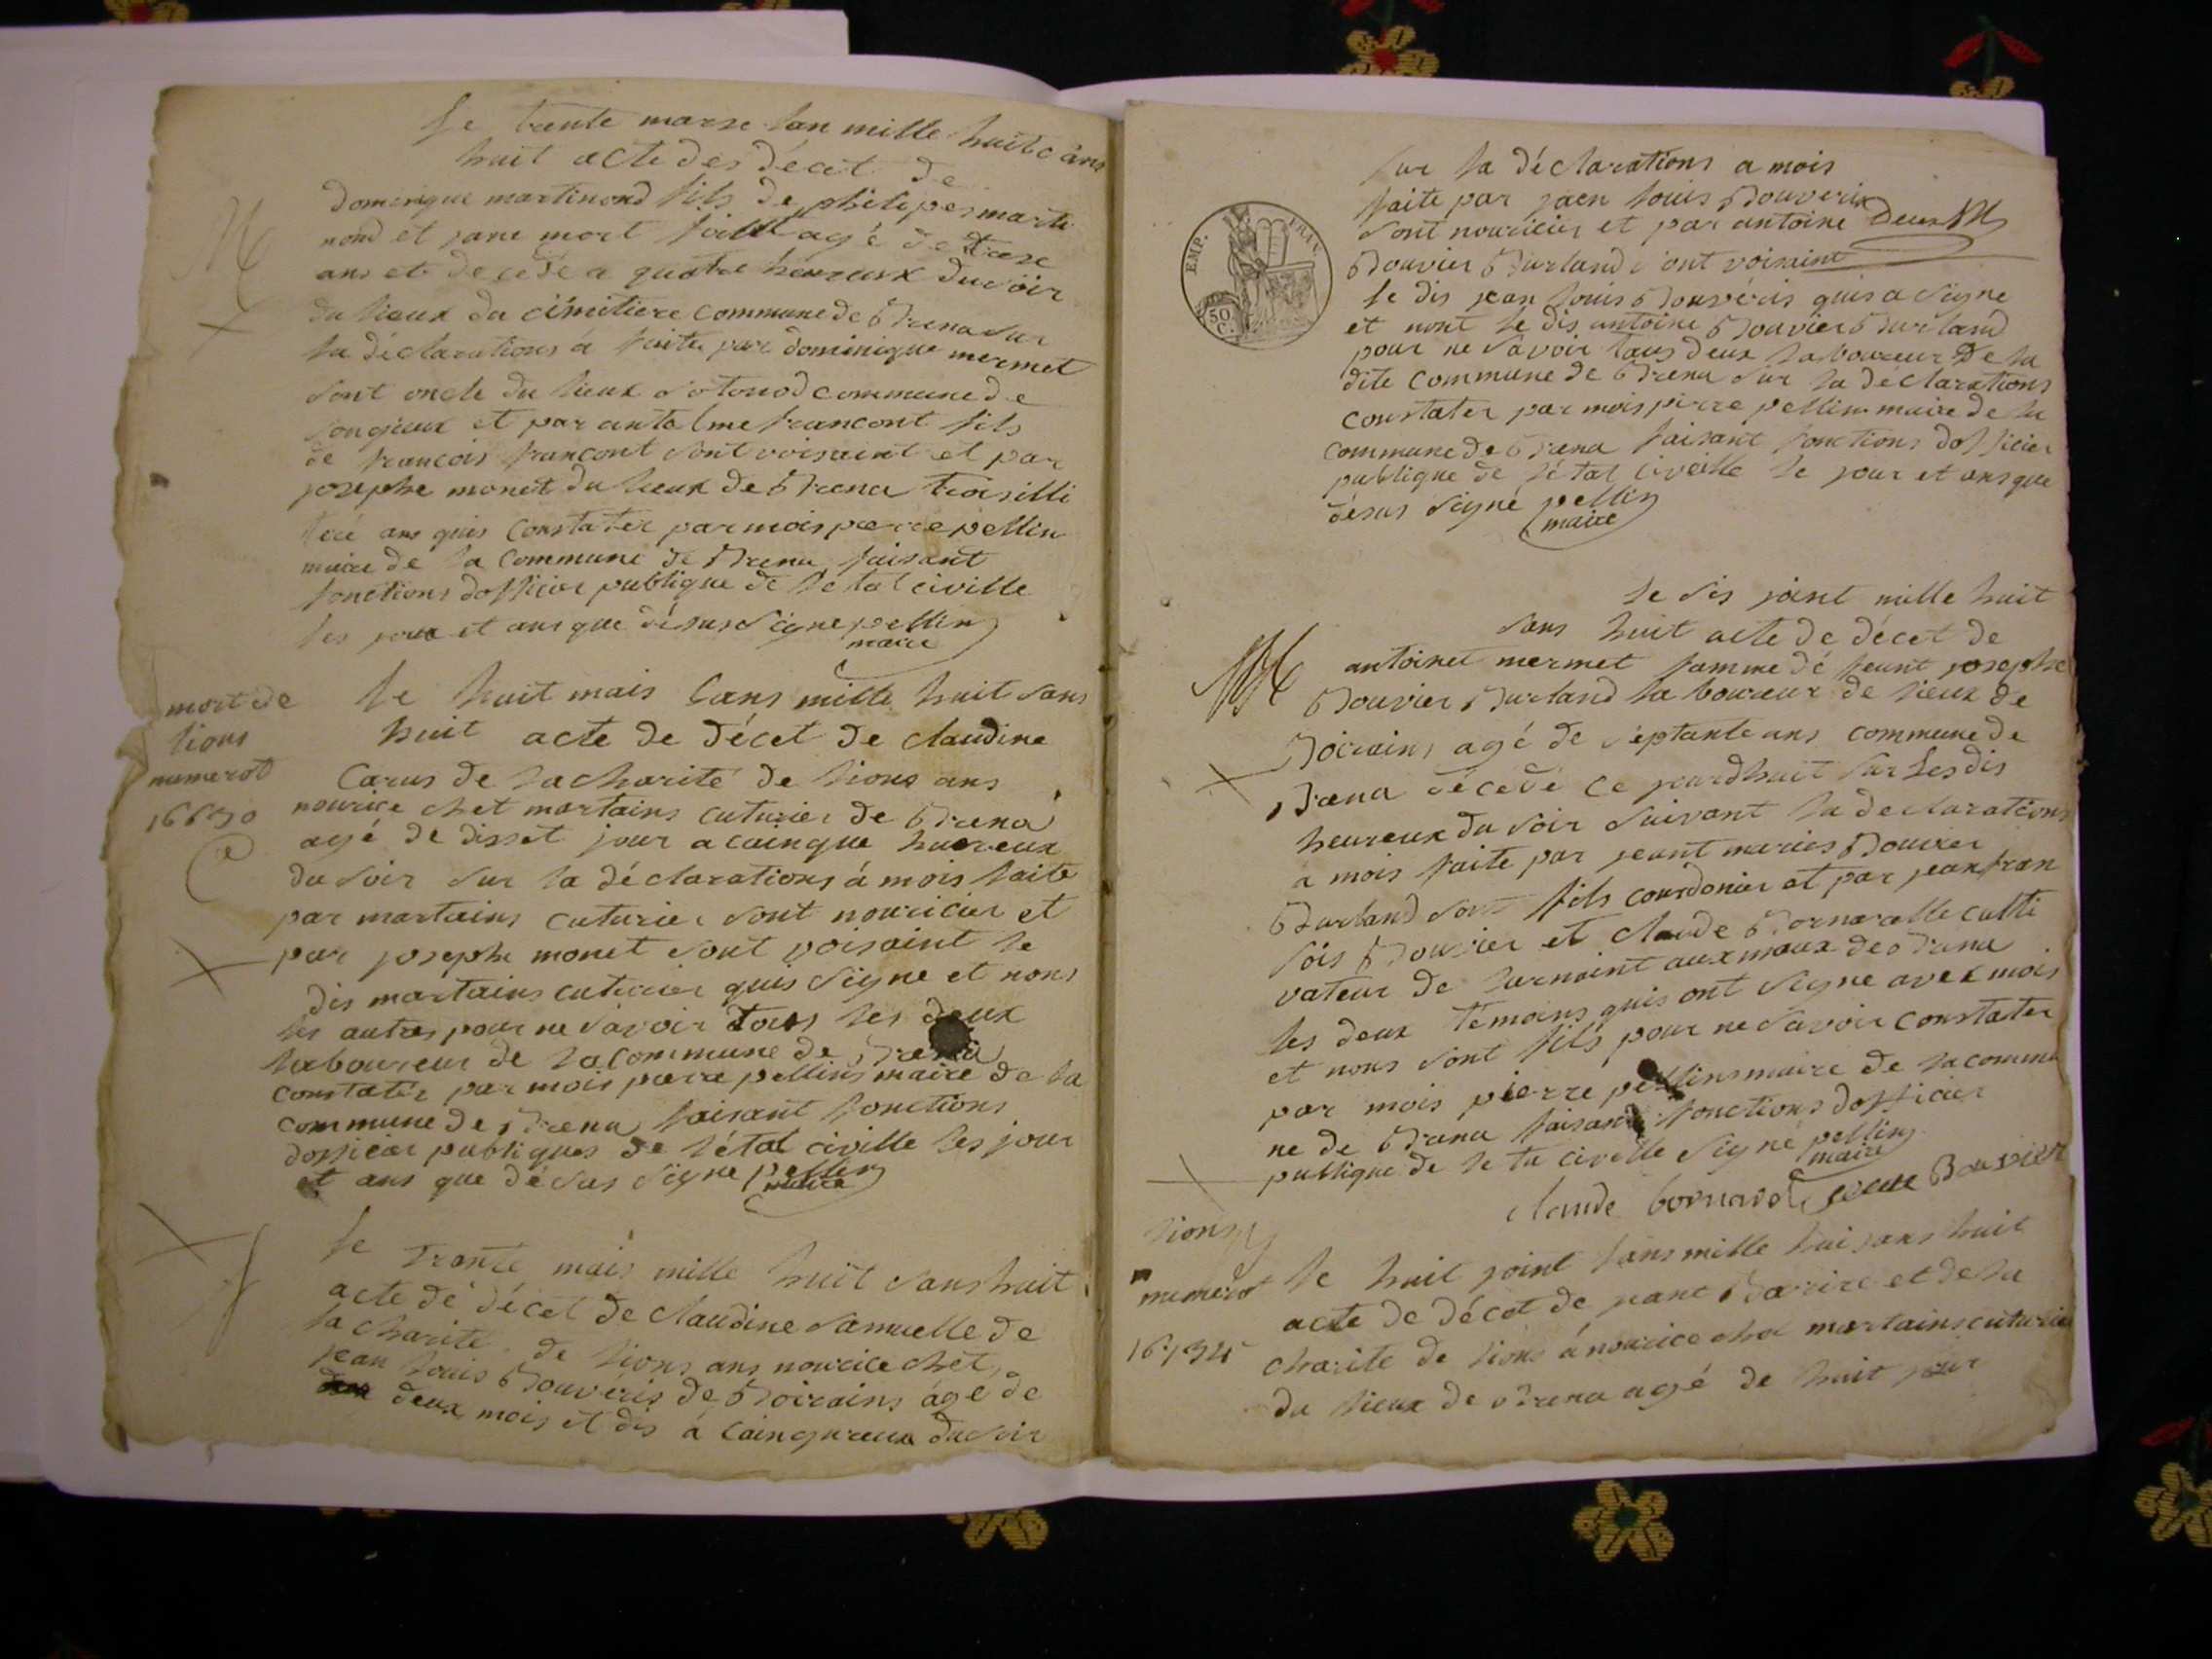 Le trente marse lan mille huit c ans
huit acte des décet de
dominique martinond fils de philipes marti
nond et jane mort faillt agé de trese
ans et decede a quatre heureux du soir
du lieux du cimitiere commune de Brena sur
la déclarations a faite par dominique mermet
sont oncle du lieux sotonod commune de
songieux et par antalme francont fils
de francois francont sont voisaint et par
josephe monet du lieux de Brena trois illi
teré ans quis constater par mois pierre pellin
maire de la commune de Brena faisant
fonctions dofficier publique de letat civille
les jour et ans que désus signe pellin
maire
mort de
lions
numerot
16630
Le huit mais lans mille huit sans
huit acte de décet de claudine
Carus de la charité de lions ans
nourice chet martains cuturier de Brena
agé de disset jour a cainque huereux
du soir sur la déclarations á mois faite
par martains cuturier sont nouricier et
par josephe monet sont voisaint le
dis martains cuturier quis signe et nons
les autres pour ne savoir tous les deux
laboureur de la commune de Brena
constater par mois pierre pellins maire de la
commune de Brena faisant fonctions
dofficier publiques de létat civille les jour
et ans que désus signe pellin
maire
Le trante mais mille huit sans huit
acte dé décet de claudine samuelle de
la charite de lions ans nourice chet
jean louis Bouvéris de Boirains agé de
deux mois et dis á cainqureux du soir
EMP. FRAN.
50
C.
sur la déclarations a mois
faite par jaen louis Bouveris
sont nouricier et par antoine deux M
Bouvier Burland sont voisaint
le dis jean louis Bouvéris quis a signe
et nont le dis antoine Bouvier Burland
pour ne savoir tous deux laboureur de la
dite commune de Brena sur la déclarations
constater par mois pirre pellin maire de la
commune de Brena faisant fonctions dofficier
publique de létat civeille le jour et ans que
désus signé pellin
maire
le sis joint mille huit
sans huit acte de décet de
antoinet mermet famme dé feunt josephe
Bouvier Burland laboureur de lieux de
Boirains agé de séptante ans commune de
Brena décédé ce jourdhuit sur les dis
heureux du soir suivant la declarations
a mois faite par jeant maries Bouvier
Burland sont fils courdonier et par jean fran
sois Bouvier et claude Bornaralle culti
vateur de lurnaint aux maux de Brena
les deux témoins quis ont signe avex mois
et nons sont fils pour ne savoir constater
par mois pierre pellins maire de la commu
ne de Brana faisant fonctions dofficier
publique de le ta civille signé pellin
maire
claude bornarat jean Bouvier
lions
numerot
16134
le huit joint lans mille hui sans huit
acte de décet de jane Barire et de la
charite de lions á nourice chet martains cuturie
du lieux de Brena agé de huit jour